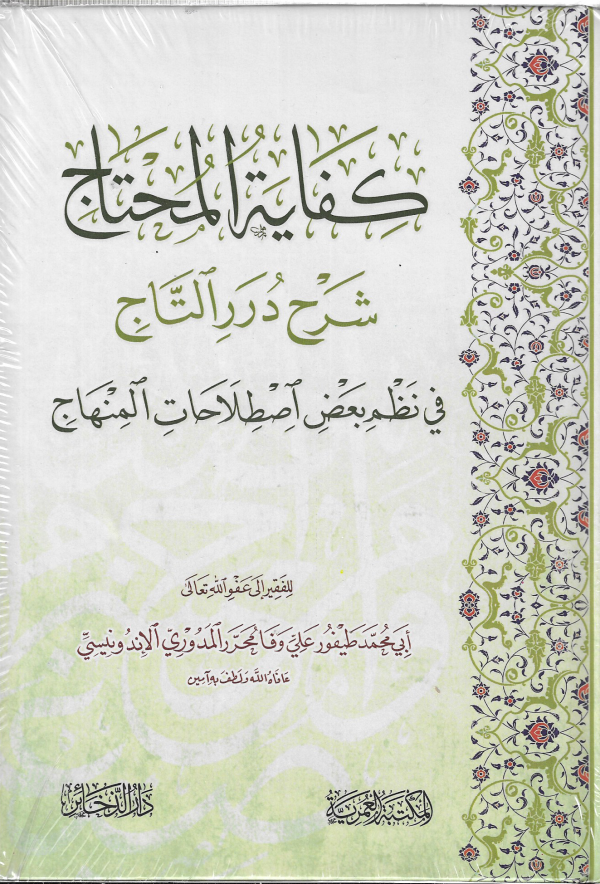 كِفَايَةُ الْمُحْتَاجِ
شَرْح دُرَرِ ٱلتَّاجِ
فِي نَظْمِ بَعْضِ ٱصْطِلَاحَاتِ ٱلْمِنْهَاجِ
للفقير إلى عفو الله تعالى
أبي محمد طيفور علي وفا محرر المدوري الإندونيسي
عافاه الله ولطف به آمين
المكتبة العمرية
دار الذخائر